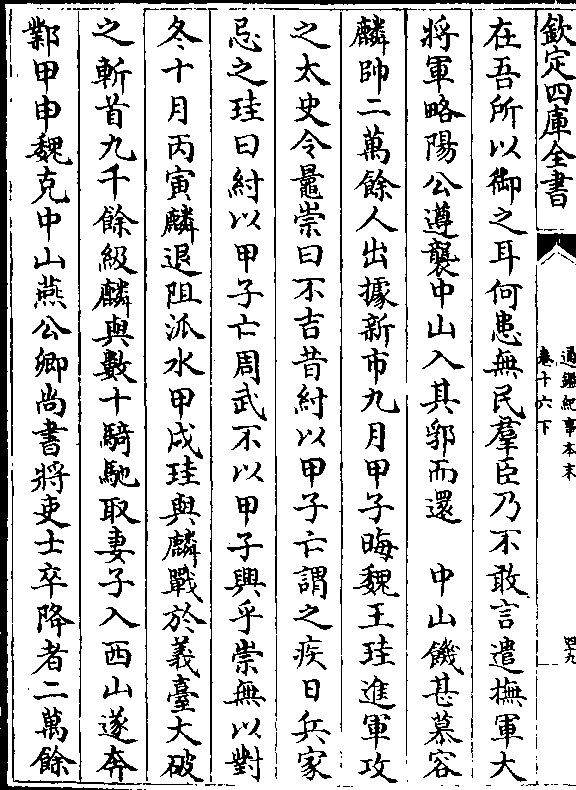 欽定四庫全書
通鑑紀事本末
卷十六下
四十九
在吾所以御之耳何患無民羣臣乃不敢言遣撫軍大
將軍略陽公遵襲中山入其郛而還　中山饑甚慕容
麟帥二萬餘人出據新市九月甲子晦魏王珪進軍攻
之太史令鼂崇曰不吉昔紂以甲子亡謂之疾日兵家
忌之珪曰紂以甲子亡周武不以甲子興乎崇無以對
冬十月丙寅麟退阻泒水甲戌珪與麟戰於義臺大破
之斬首九千餘級麟與數十騎馳取妻子入西山遂奔
鄴甲申魏克中山燕公卿尚書將吏士卒降者二萬餘